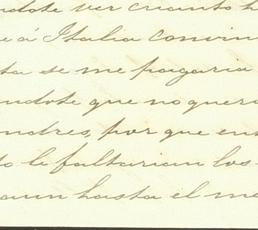 ndote ver cuanto h
e á Italia convin
ta se me pagaria
ndote que no quer
ndres, por que en
to le faltarian los
aun hasta el me